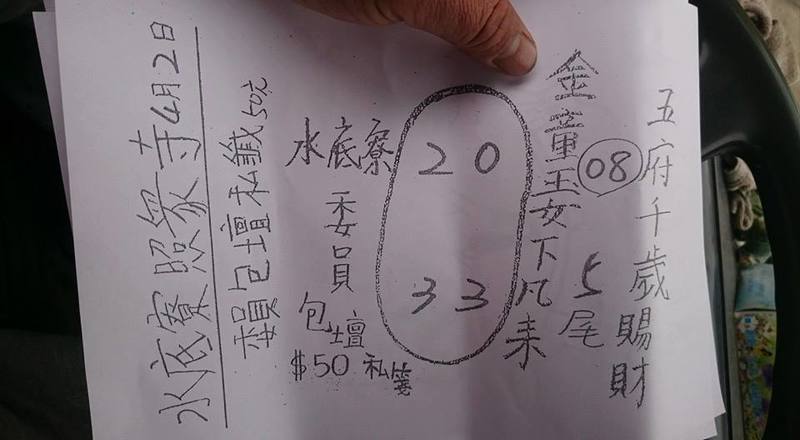 五府千歲賜財
08
5尾
金童玉女下凡来
20
33
水底寮
委員
包壇
$50 私箋
委員包壇私籤50元
水底寮照衆寺4月2日